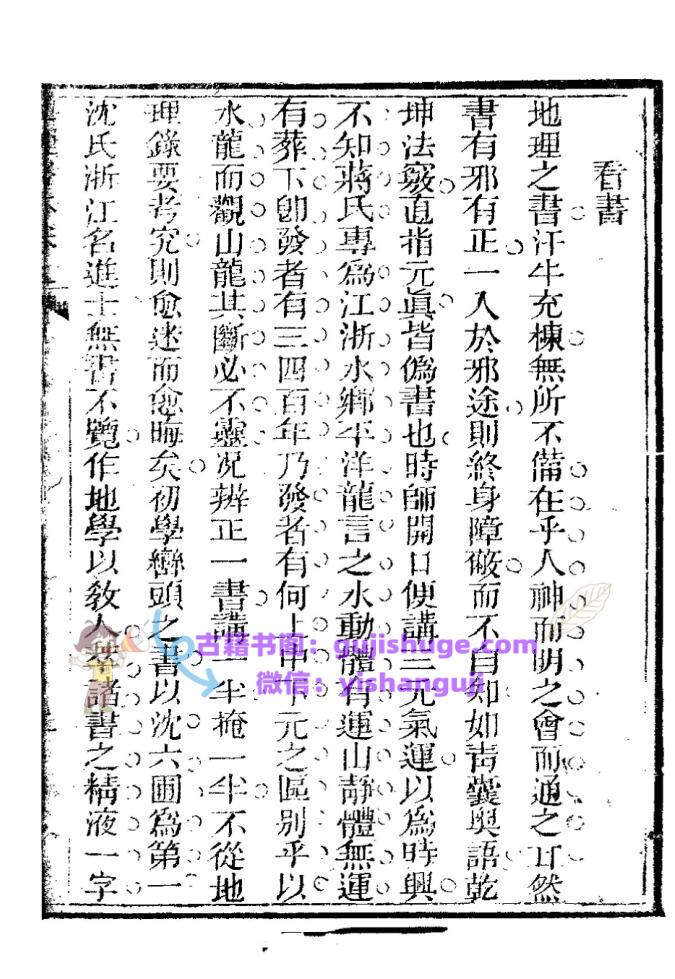 看書
地理之書汗牛充棟無所不備在乎人神而明之會而通之耳然
書有邪有正一入於邪途則終身障蔽而不自知如青囊奧語乾
坤法竅直指元眞皆僞書也時師開口便講三元氣運以爲時興
不知蔣氏專爲江浙水鄉平洋龍言之水動體有運山靜體無運
有葬下卽發者有三四百年乃發者有何上中下元之區別乎以
水龍而觀山龍其斷必不靈况辨正一書講一半掩一半不從地
理錄要考究則愈迷而愈晦矣初學巒頭之書以沈六圃爲第一
沈氏浙江名進士無書不覽作地學以敎人萃諸書之精液一字
古籍书阁：gujishuge.com
微信：yishanguji